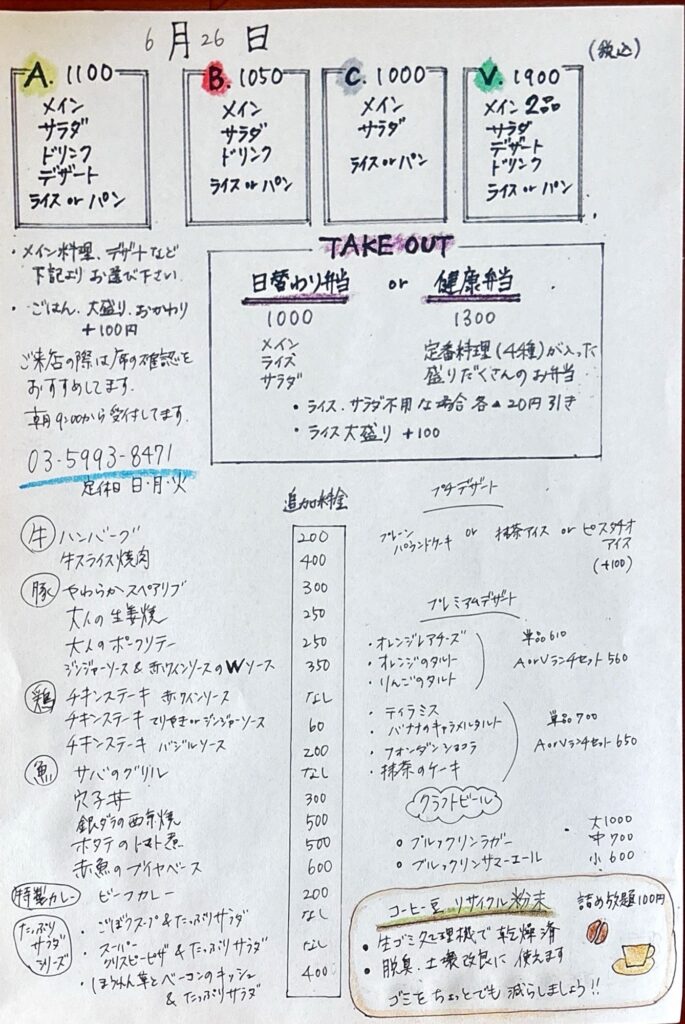 6月26日
(税込)
A. 1100
メイン
サラダ
ドリンク
デザート
ライス or パン
B. 1050
メイン
サラダ
ドリンク
ライス or パン
C. 1000
メイン
サラダ
ライス or パン
V. 1900
メイン 2品
サラダ
デザート
ドリンク
ライス or パン
・メイン料理、デザートなど
下記より お選び下さい
・ごはん、大盛り、おかわり
+100円
ご来店の際は の確認を
おすすめしてます。
朝9:00から受付してます。
03-5993-8471
定休日 日・月・火
TAKE OUT
日替わり弁当 or 健康弁当
1000
メイン
ライス
サラダ
1300
定番料理(4種)が入った
盛りだくさんのお弁当
・ライス、サラダ不用な場合 各▲20円引き
・ライス大盛り +100
追加料金
牛 ハンバーグ 200
牛スライス焼肉 400
豚 やわらかスペアリブ 300
大人の生姜焼 250
大人のポークソテー 250
ジンジャーソース & 赤ワインソースのWソース 350
鶏 チキンステーキ 赤ワインソース なし
チキンステーキ てりやき or ジンジャーソース 60
チキンステーキ バジルソース 200
魚 サバのグリル なし
穴子丼 300
銀ダラの西京焼 500
ホタテのトマト煮 500
赤魚のブイヤベース 600
特製カレー ビーフカレー 200
たっぷり
サラダ
シリーズ
・ごぼうスープ & たっぷりサラダ なし
・スーパー
クリスピーピザ & たっぷりサラダ なし
・ほうれん草とベーコンのキッシュ 400
& たっぷりサラダ
プチデザート
プレーン
パウンドケーキ or 抹茶アイス or ピスタチオ
アイス
(+100)
プレミアムデザート
・オレンジレアチーズ
・オレンジのタルト
・りんごのタルト
単品 610
A or V ランチセット 560
・ティラミス
・バナナのキャラメルタルト
・フォンダンショコラ
・抹茶のケーキ
単品 700
A or V ランチセット 650
クラフトビール
○ ブルックリンラガー
○ ブルックリンサマーエール
・大1000
中 700
小 600
コーヒー豆 リサイクル粉末 詰め放題100円
・生ゴミ処理機で 乾燥済
・脱臭、土壌改良に 使えます
ゴミを ちょっとでも 減らしましょう!!